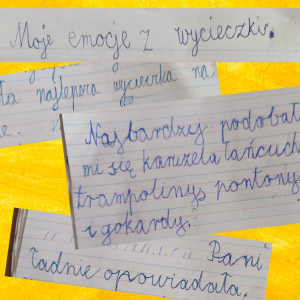 Moje emocje z wycieczki.
ta najlepsza wycieczka na
e.
Najbardziej podobał
mi się karuzela łańcuch
trampolinys pontonys
i gokardy.
Pani
ładnie opowiadała.